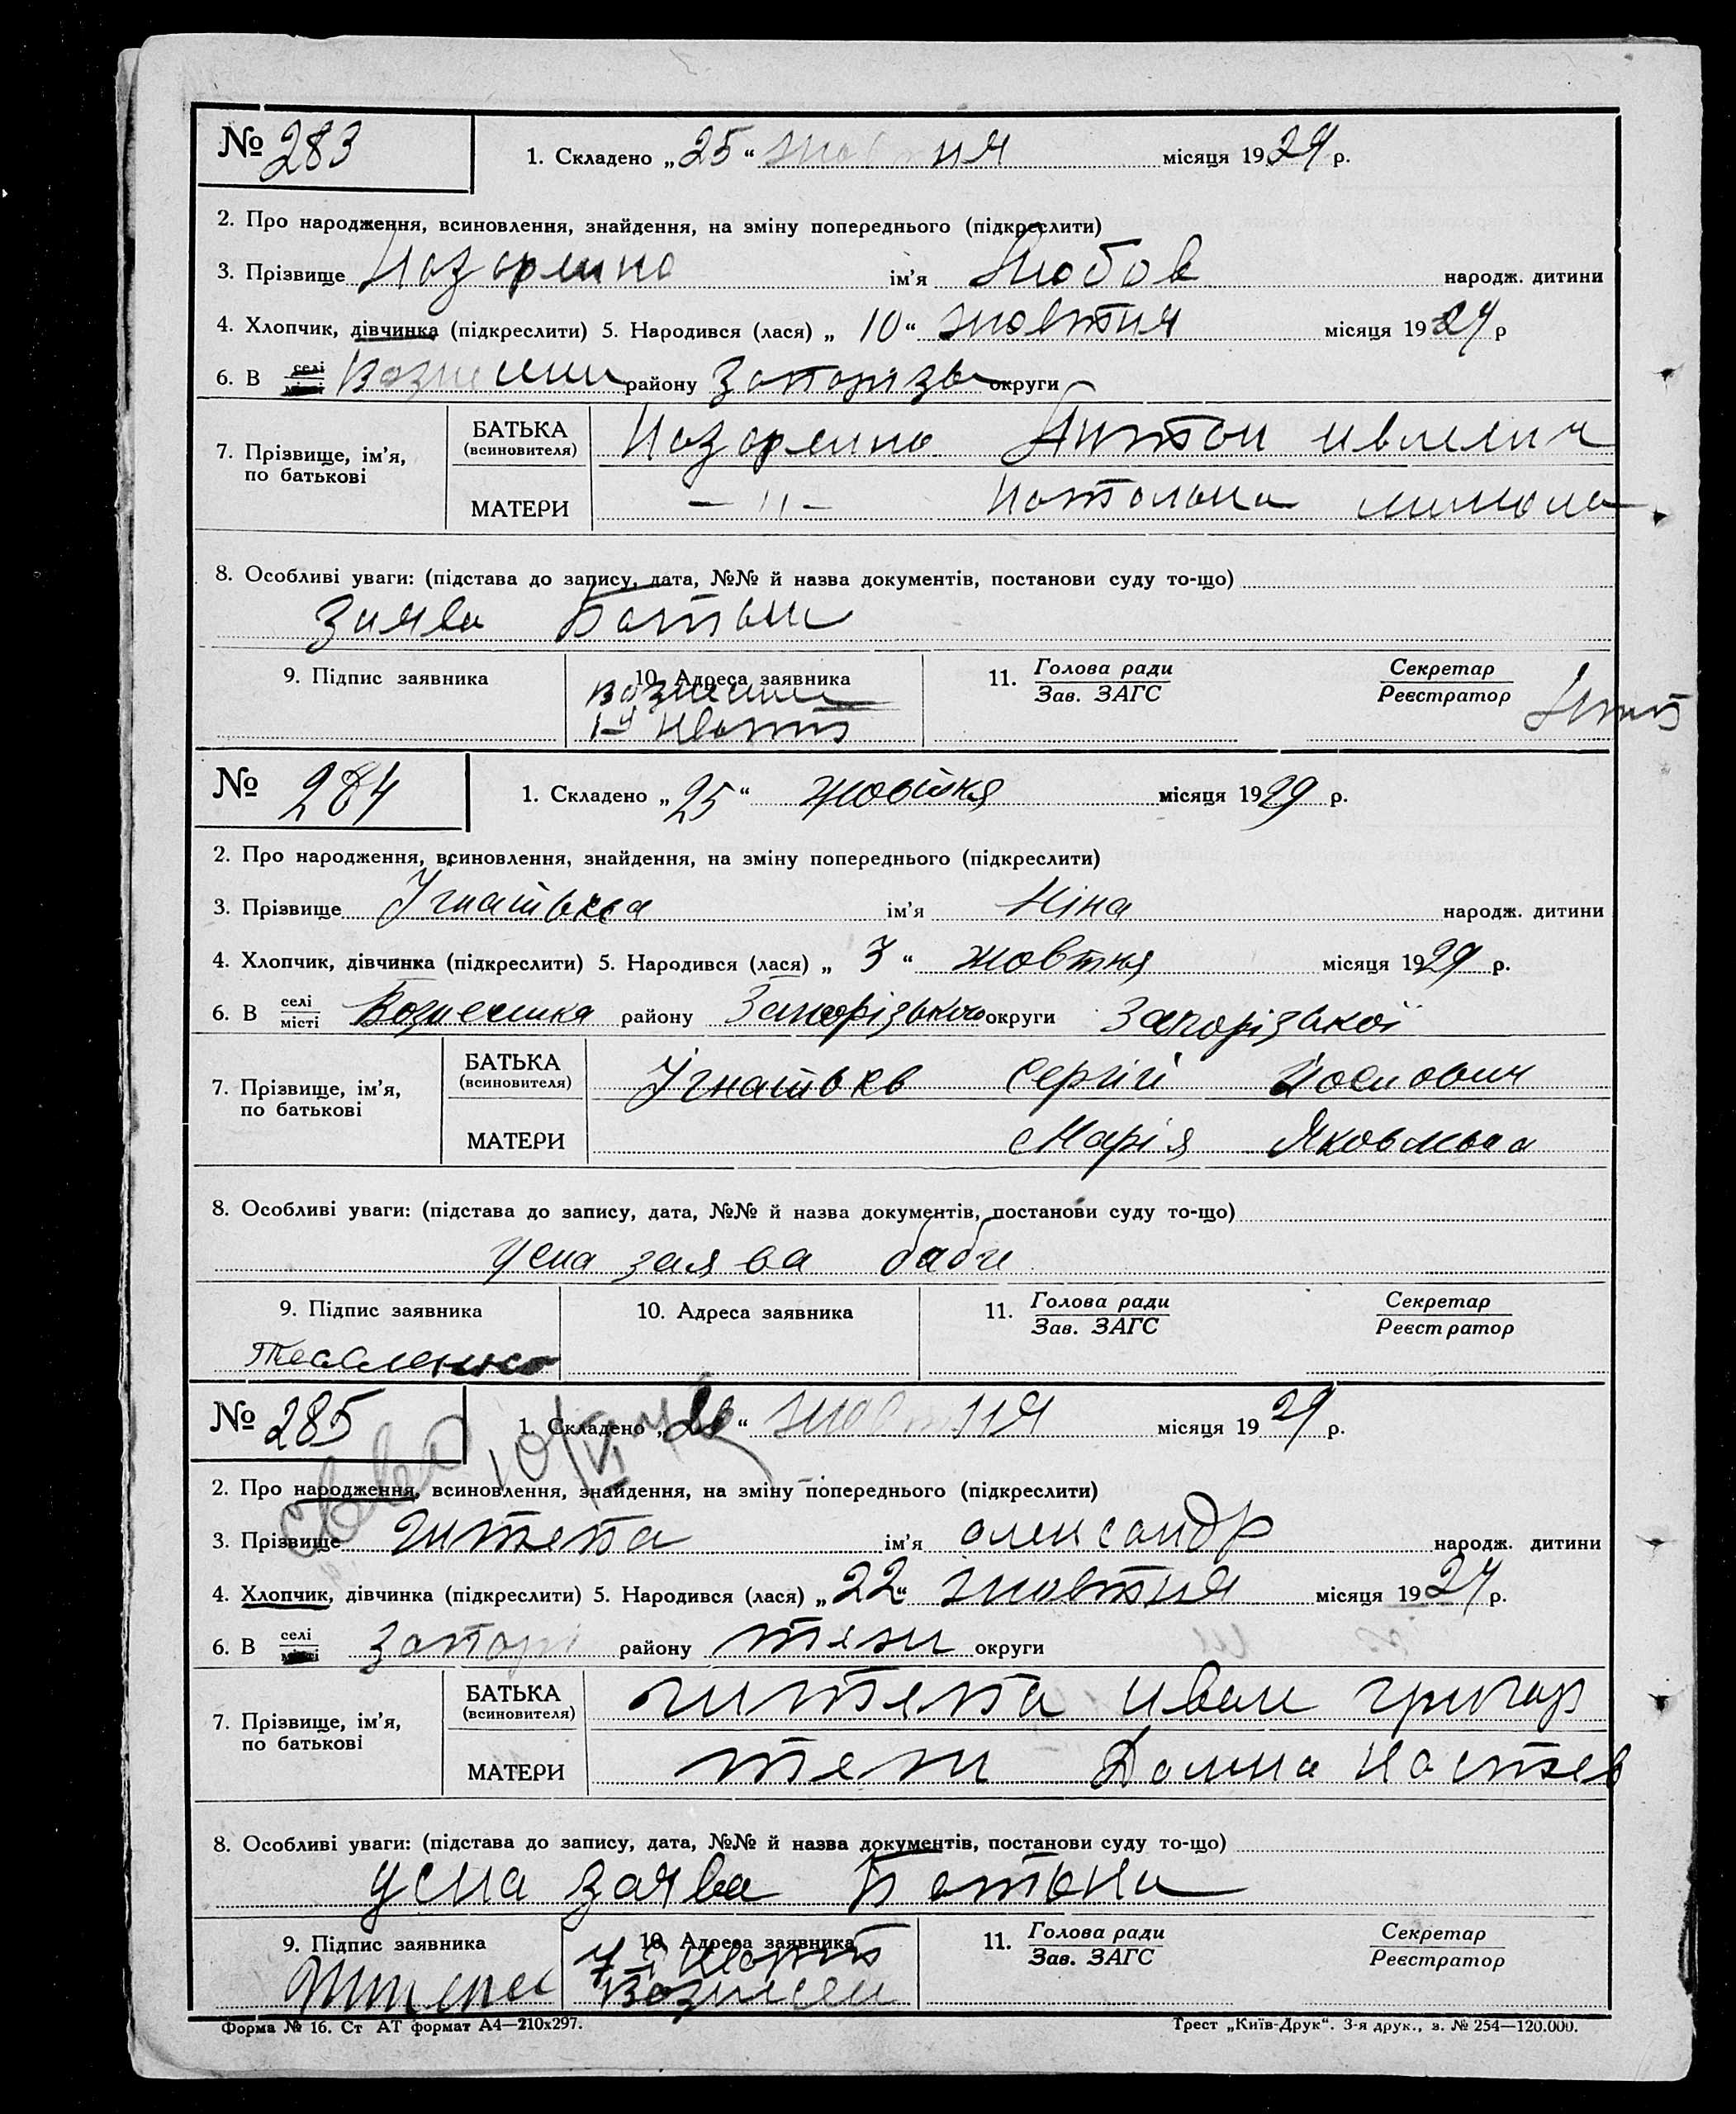 № 283 1. Складено „25“ жовтня місяця 1929 р.
2. Про народження, всиновлення, знайдення, на зміну попереднього (підкреслити)
3. Прізвище ім’я Любов народж. дитини
4. Хлопчик, дівчинка (підкреслити) 5. Народився (лася) „10“ жовтня місяця 1929 р
6. В селі місті району Запорізь округи
7. Прізвище, ім’я, по батькові
БАТЬКА (всиновителя) Антон
МАТЕРИ — 〃 —
8. Особливі уваги: (підстава до запису, дата, №№ й назва документів, постанови суду то-що)
Заява Батьки
9. Підпис заявника 10. Адреса заявника 11. Голова ради Зав. ЗАГС Секретар Реєстратор
№ 284 1. Складено „25“ жовтня місяця 1929 р.
2. Про народження, всиновлення, знайдення, на зміну попереднього (підкреслити)
3. Прізвище Ігнатьєва ім’я Ніна народж. дитини
4. Хлопчик, дівчинка (підкреслити) 5. Народився (лася) „3“ жовтня місяця 1929 р.
6. В селі місті Вознесенка району Запорізького округи Запорізької
7. Прізвище, ім’я, по батькові
БАТЬКА (всиновителя) Ігнатьєв Сергій Йосипович
МАТЕРИ Марія Яковлевна
8. Особливі уваги: (підстава до запису, дата, №№ й назва документів, постанови суду то-що)
Усна заява баби
9. Підпис заявника 10. Адреса заявника 11. Голова ради Зав. ЗАГС Секретар Реєстратор
Тесленко
№ 285 1. Складено жовтня місяця 1929 р.
2. Про народження, всиновлення, знайдення, на зміну попереднього (підкреслити)
3. Прізвище ім’я Олександр народж. дитини
4. Хлопчик, дівчинка (підкреслити) 5. Народився (лася) „22“ жовтня місяця 1929 р.
6. В селі місті Запорі району теж округи
7. Прізвище, ім’я, по батькові
БАТЬКА (всиновителя) Иван Григор
МАТЕРИ теж
8. Особливі уваги: (підстава до запису, дата, №№ й назва документів, постанови суду то-що)
Усна заява Батька
9. Підпис заявника 10. Адреса заявника 11. Голова ради Зав. ЗАГС Секретар Реєстратор
Форма № 16. Ст АТ формат А4—210х297. Трест „Київ-Друк“. 3-я друк., з. № 254—120.000.